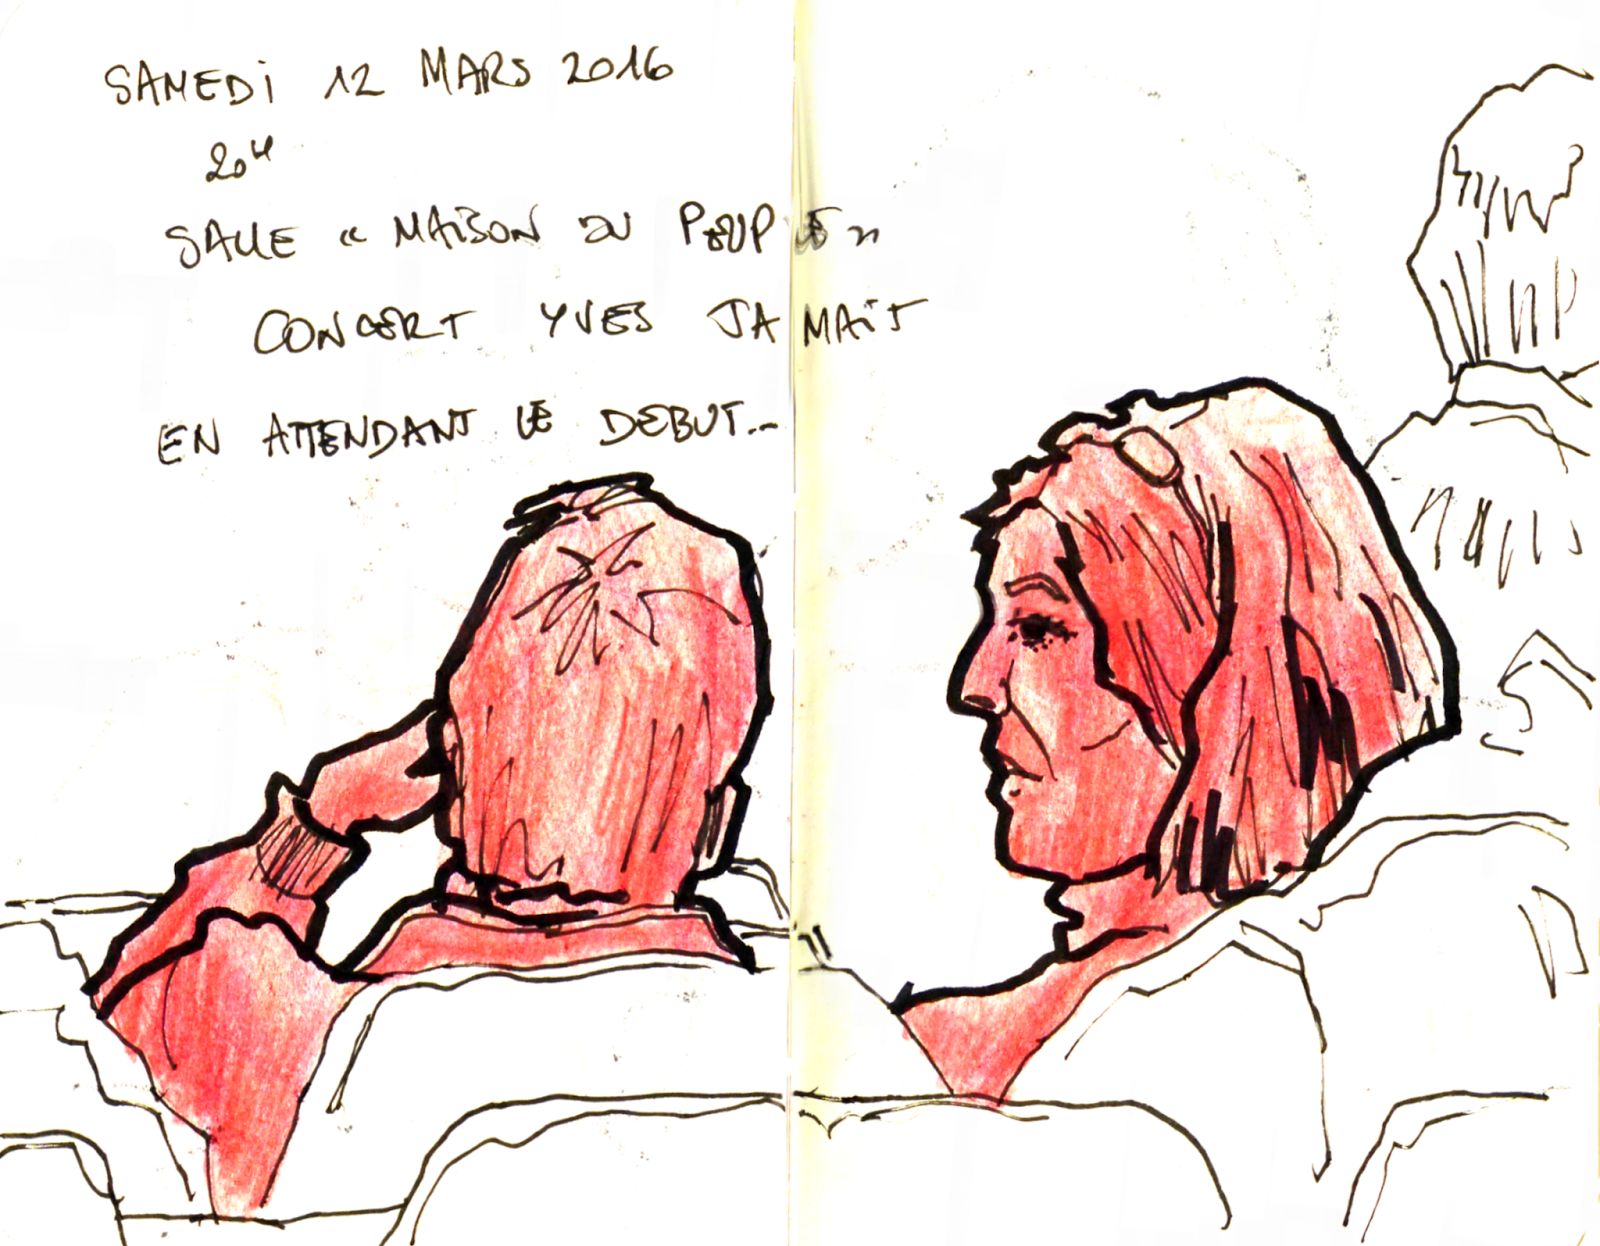 SAMEDi 12 MARS 2016
20H
SALLE « MAiSON DU PEUPLE »
CONCERT YVES JAMAiT
EN ATTENDANT LE DEBUT...